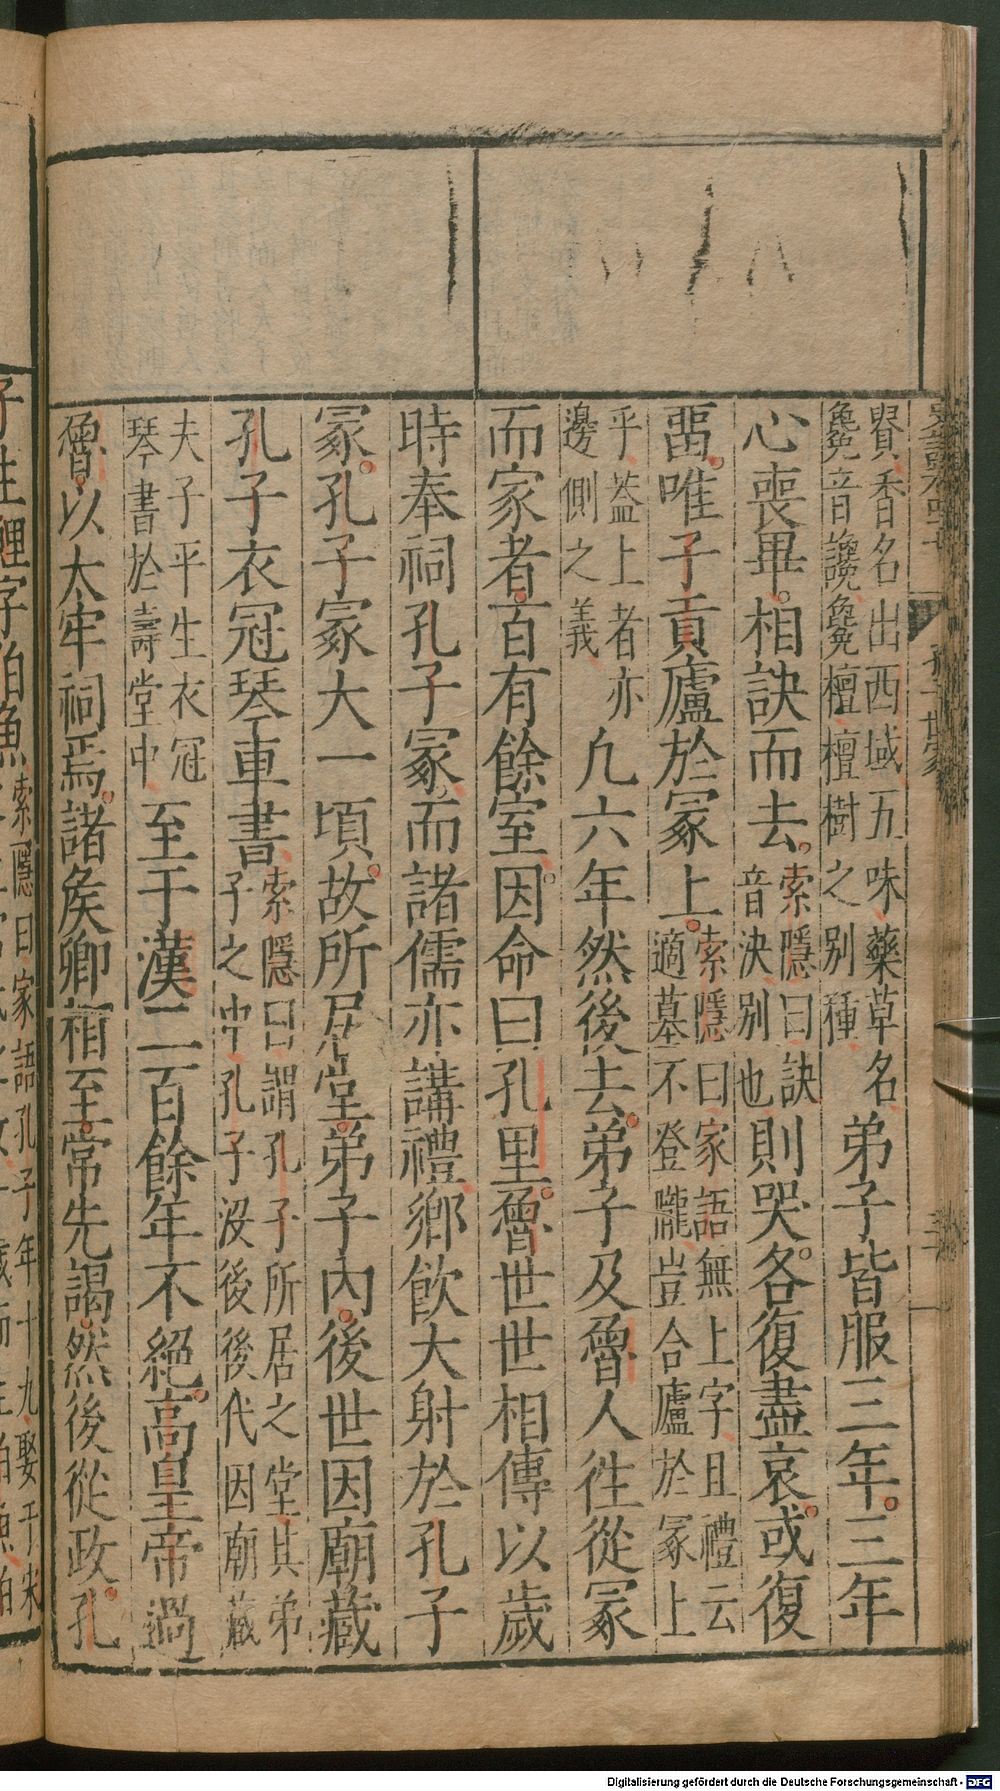 賢香名出西域五味藥草名
毚音讒毚檀檀樹之別種
弟子皆服三年三年
心喪畢相訣而去
索隱曰訣
音決別也
則哭各復盡哀或復
畱唯子貢廬於冢上
索隱曰家語無上字且禮云
適墓不登隴豈合廬於冢上
乎葢上者亦
邊側之義
凡六年然後去弟子及魯人徃從冢
而家者百有餘室因命曰孔里魯世世相傳以歲
時奉祠孔子冢而諸儒亦講禮鄉飲大射於孔子
冢孔子冢大一頃故所居堂弟子內後世因廟藏
孔子衣冠琴車書
索隱曰謂孔子所居之堂其弟
子之中孔子沒後後代因廟藏
夫子平生衣冠
琴書於壽堂中
至于漢二百餘年不絕高皇帝過
魯以太牢祠焉諸矦卿相至常先謁然後從政孔
子生鯉字伯魚
索隱曰家語孔子年十九娶于宋
Digitalisierung gefördert durch die Deutsche Forschungsgemeinschaft - DFG